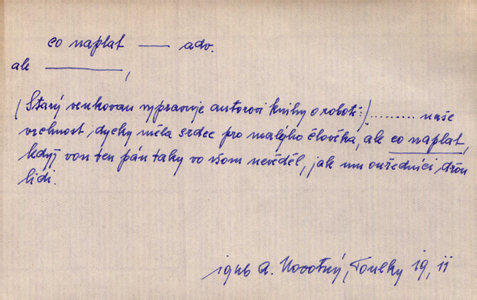 co naplat — adv.
ale ———,
(Starý venkovan vypravuje autorovi knihy o robotě:) ........ naše
vrchnost dycky měla srdce pro malýho člověka, ale co naplat,
když von ten pán taky vo všom nevěděl, jak mu ouředníci dřou
lidi.
1946 A. Novotný, Toulky 19, II